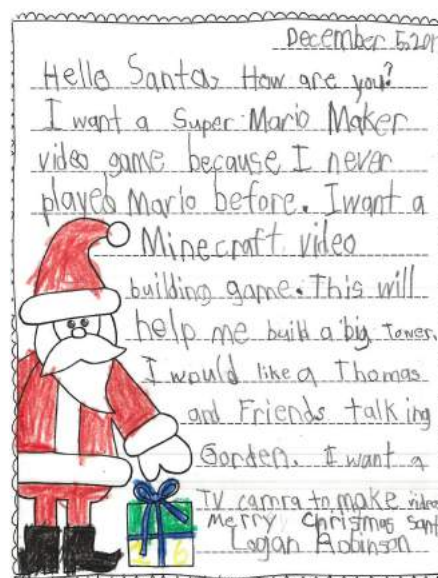 December 5, 201
Hello Santa, How are you?
I want a Super Mario Maker
video game because I never
played Mario before. I want a
Minecraft video
building game. This will
help me build a big Tower.
I would like a Thomas
and Friends talking
Gorden. I want a
TV camra to make video
Merry Christmas Sant
Logan Robinson